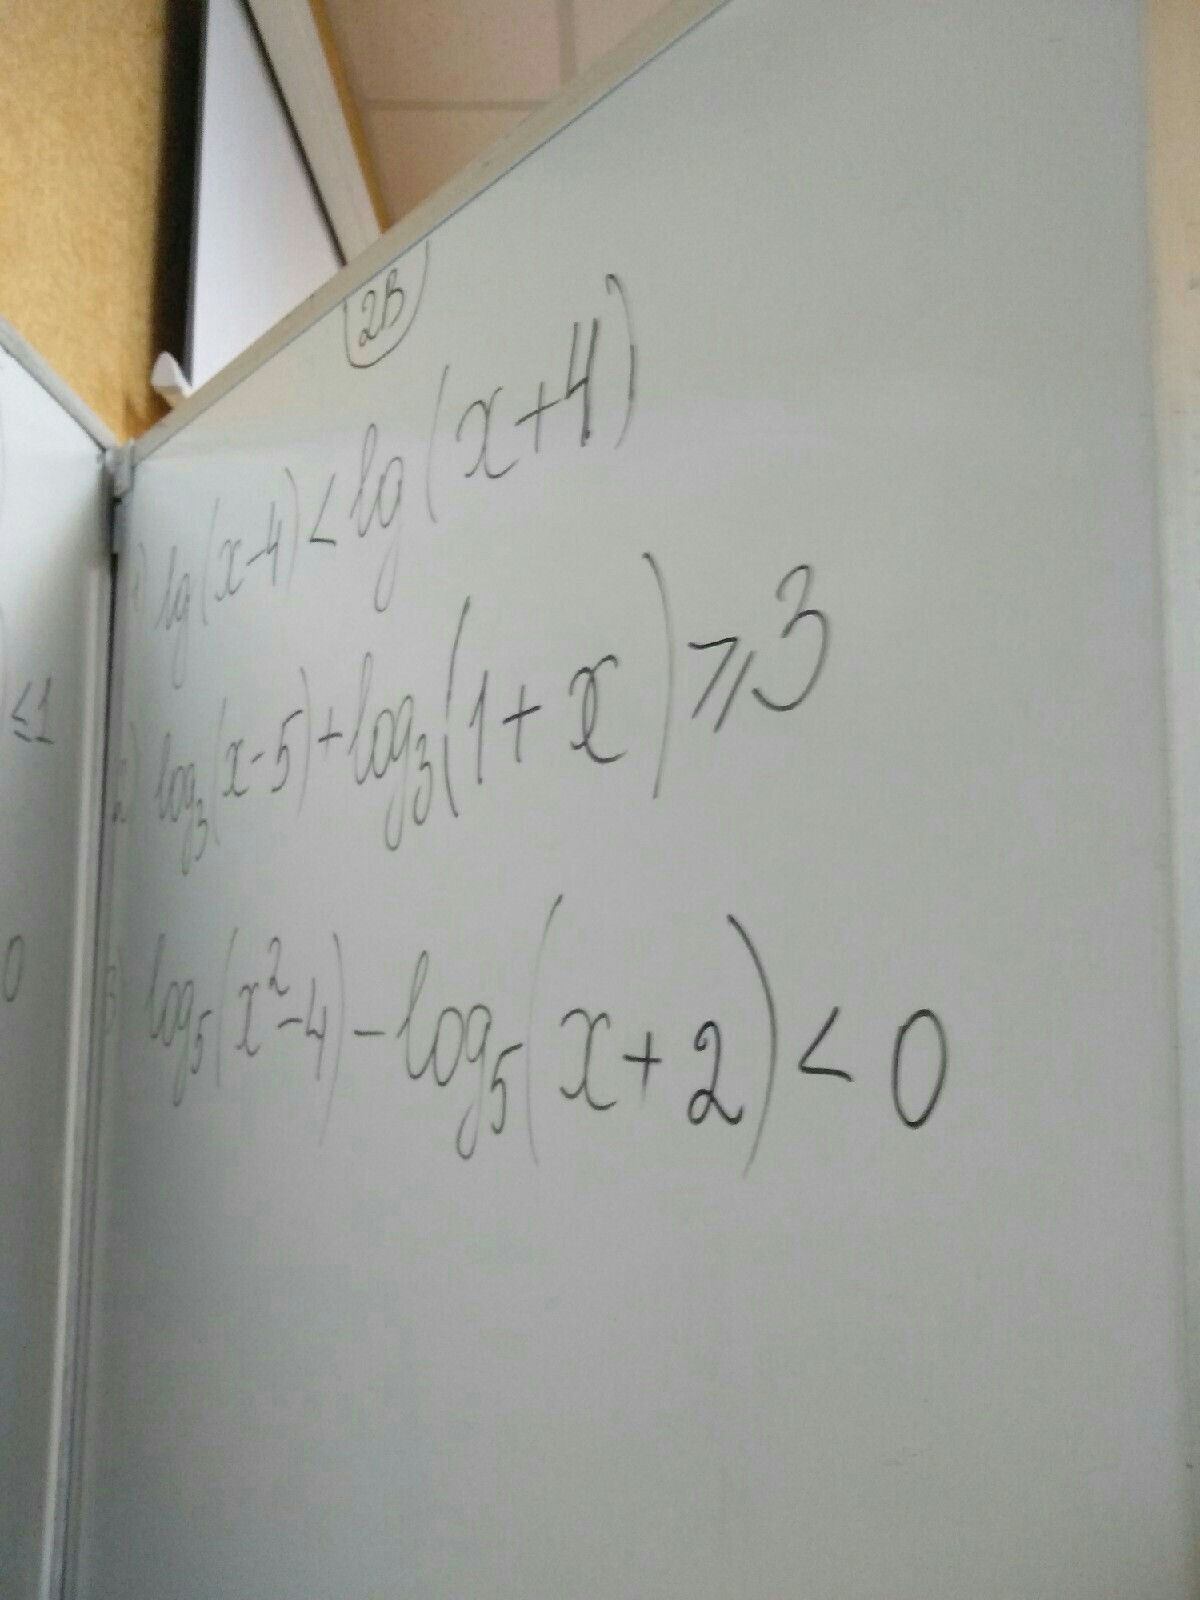 2В
1) lg(x-4) < lg(x+4)
2) log₃(x-5) + log₃(1+x) ⩾ 3
3) log₅(x²-4) - log₅(x+2) < 0
≤1
0